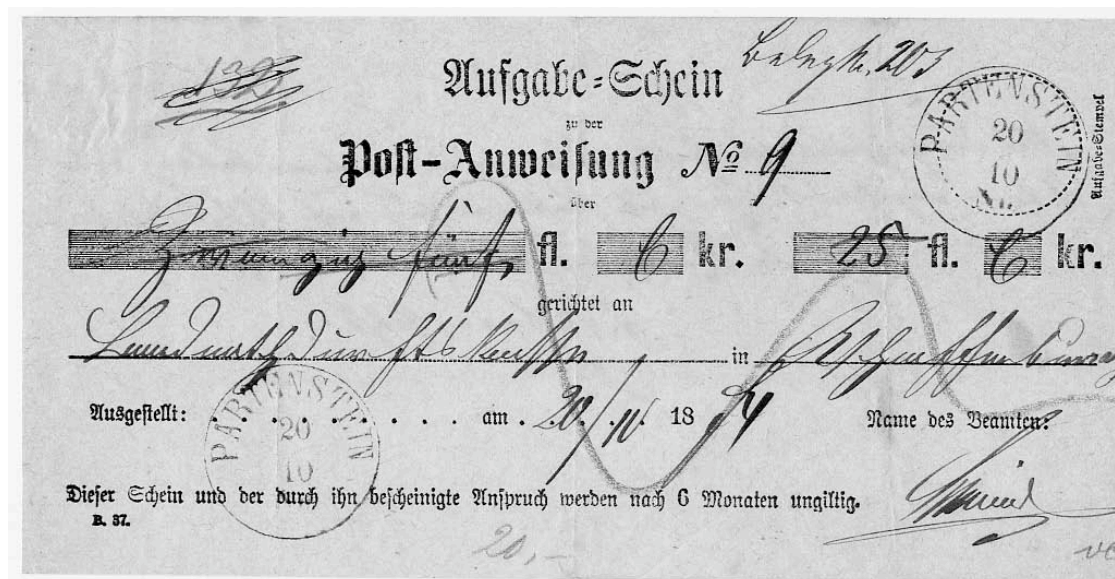 132
Aufgabe-Schein
Belegst. 203
zu der
Post-Anweisung No 9
PARTENSTEIN
20
10
Aufgabe-Stempel
über
Zwanzig fünf fl. 6 kr. 25 fl. 6 kr.
gerichtet an
in Aschaffenburg
Ausgestellt: . . . . . . . . . am 20/10 1874 Name des Beamten:
PARTENSTEIN
20
10
Dieser Schein und der durch ihn bescheinigte Anspruch werden nach 6 Monaten ungiltig.
B. 37.
20,-